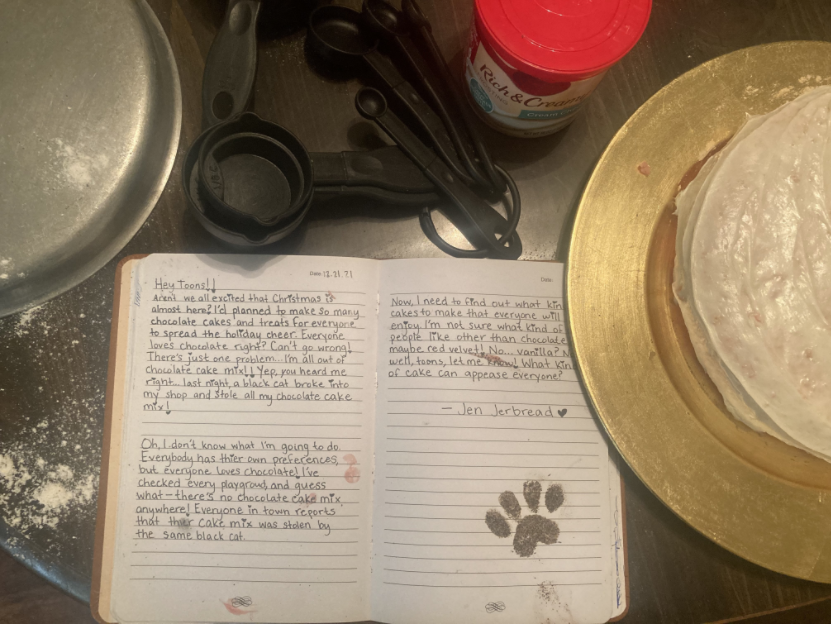 1/3 C
Rich & Cream
Cream C
Date: 12.21.21
Hey Toons!!
Aren't we all excited that Christmas is
almost here? I'd planned to make so many
chocolate cakes and treats for everyone
to spread the holiday cheer. Everyone
loves chocolate right? Can't go wrong!
There's just one problem... I'm all out of
chocolate cake mix!! Yep, you heard me
right... last night, a black cat broke into
my shop and stole all my chocolate cake
mix!
Oh, I don't know what I'm going to do.
Everybody has thier own preferences,
but everyone loves chocolate! I've
checked every playgroud, and guess
what-there's no chocolate cake mix
anywhere! Everyone in town reports
that their cake mix was stolen by
the same black cat.
Date:
Now, I need to find out what kin
cakes to make that everyone will
enjoy. I'm not sure what kind of
people like other than chocolate
maybe red velvet! No... vanilla? N
well, toons, let me know! What kin
of cake can appease everyone?
- Jen Jerbread ♥